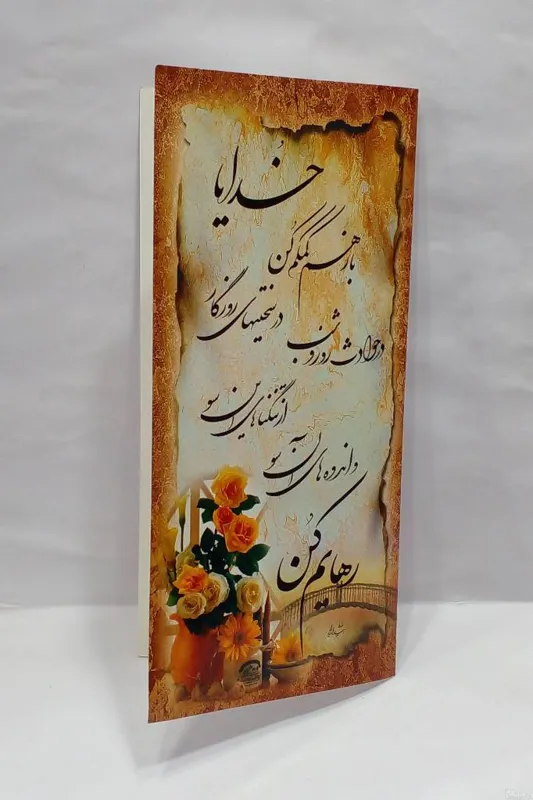 خُدایا
باز هم کمکم کُن
در سختیهای روزگار
در حوادث روز و شب
از تنگناهای این سو
و اندوه های آن سو
رهایم کُن